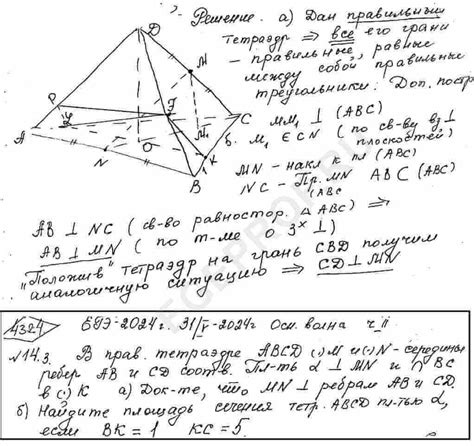 Решение. а) Дан правильный
тетраэдр ⇒ все его грани
- правильные, равные
между собой, правильные
треугольники. Доп. постр
MM₁ ⊥ (ABC)
т. M₁ ∈ CN (по св-ву вз ⊥
плоскостей)
MN - накл к пл (ABC)
NC - Пр. MN
(ABC
D
M
P
T
L
A
C
M₁
K
N
O
B
AB ⊥ NC (св-во равностор. △ ABC) ⇒
AB ⊥ MN (по т-ме о 3ˣ ⊥)
"Положив" тетраэдр на грань CBD получим
аналогичную ситуацию ⇒ CD ⊥ MN
4324
ЕГЭ-2024г. 31/V-2024г Осн. волна ч. II
№14.3. В прав. тетраэдре ABCD (·) M и (·) N - середины
ребер AB и CD соотв. Пл-ть α ⊥ MN и ∩ BC
в (·) K а) Док-те, что MN ⊥ ребрам AB и CD
б) Найдите площадь сечения тетр. ABCD пл-тью α,
если BK = 1 KC = 5.